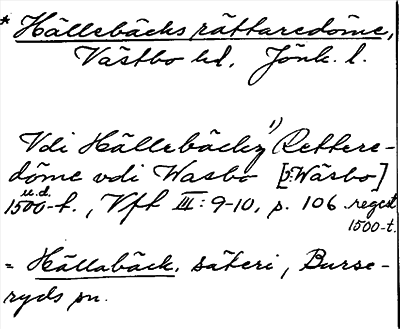 * Hällebäcks rättaredöme,
Västbo hd, Jönk. l.
Vdi Hällebäckz¹⁾ Rettere-
döme vdi Wasbo [ɔ: Wäsbo]
u.d.
1500-t., Vft III: 9-10, p. 106 regest
1500-t.
= Hällabäck, säteri, Burse-
ryds sn.